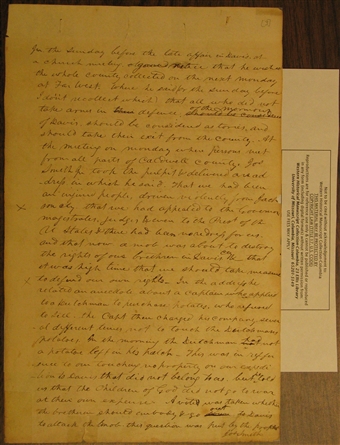 On the Sunday before the late affair in Daviess, at
a church meeting notice that he wished
the whole county collected on the next monday
at Far West. When he said or the sunday before
I dont recollect which, that all who did not
take arms in defence of the mormons
of Davis should be considered as tories, and
should take their exit from the county. At
the meeting on monday when persons met
from all parts of Caldwell County Jos
Smith took the pulpit & delivered an ad
dress in which he said That we had been
an injured people, driven violently from Jack
son Co. that we had appealed to the Governor
magistrates, judges & even to the Prest of the
U. States & there had been no redress for us.
and that now a mob was about to destroy
the rights of our brethren in Davis Co. that
it was high time that we should take means
to defend our own rights. In the address he
related an anecdote about a captain who applied
to a Dutchman to purchase potatoes, who refused
to sell. The Capt then charged his company several
different times not to touch the dutchmans
potatoes. In the morning the Dutchman had not
a potatoe left in his patch. This was in refer
ence to our touching no property on our expedi
tion to Daviess that did not belong to us. but he told
us that the Children of God did not go to war
at their own expense. A vote was taken whether
the brethren should embody & go out to Davis
to attack the mob this question was put by the prophet
Jos Smith